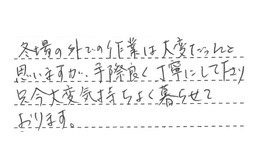 冬場の外での作業は大変だったと
思いますが、手際良く丁寧にして下さり
只今大変気持ちよく暮らせて
おります。